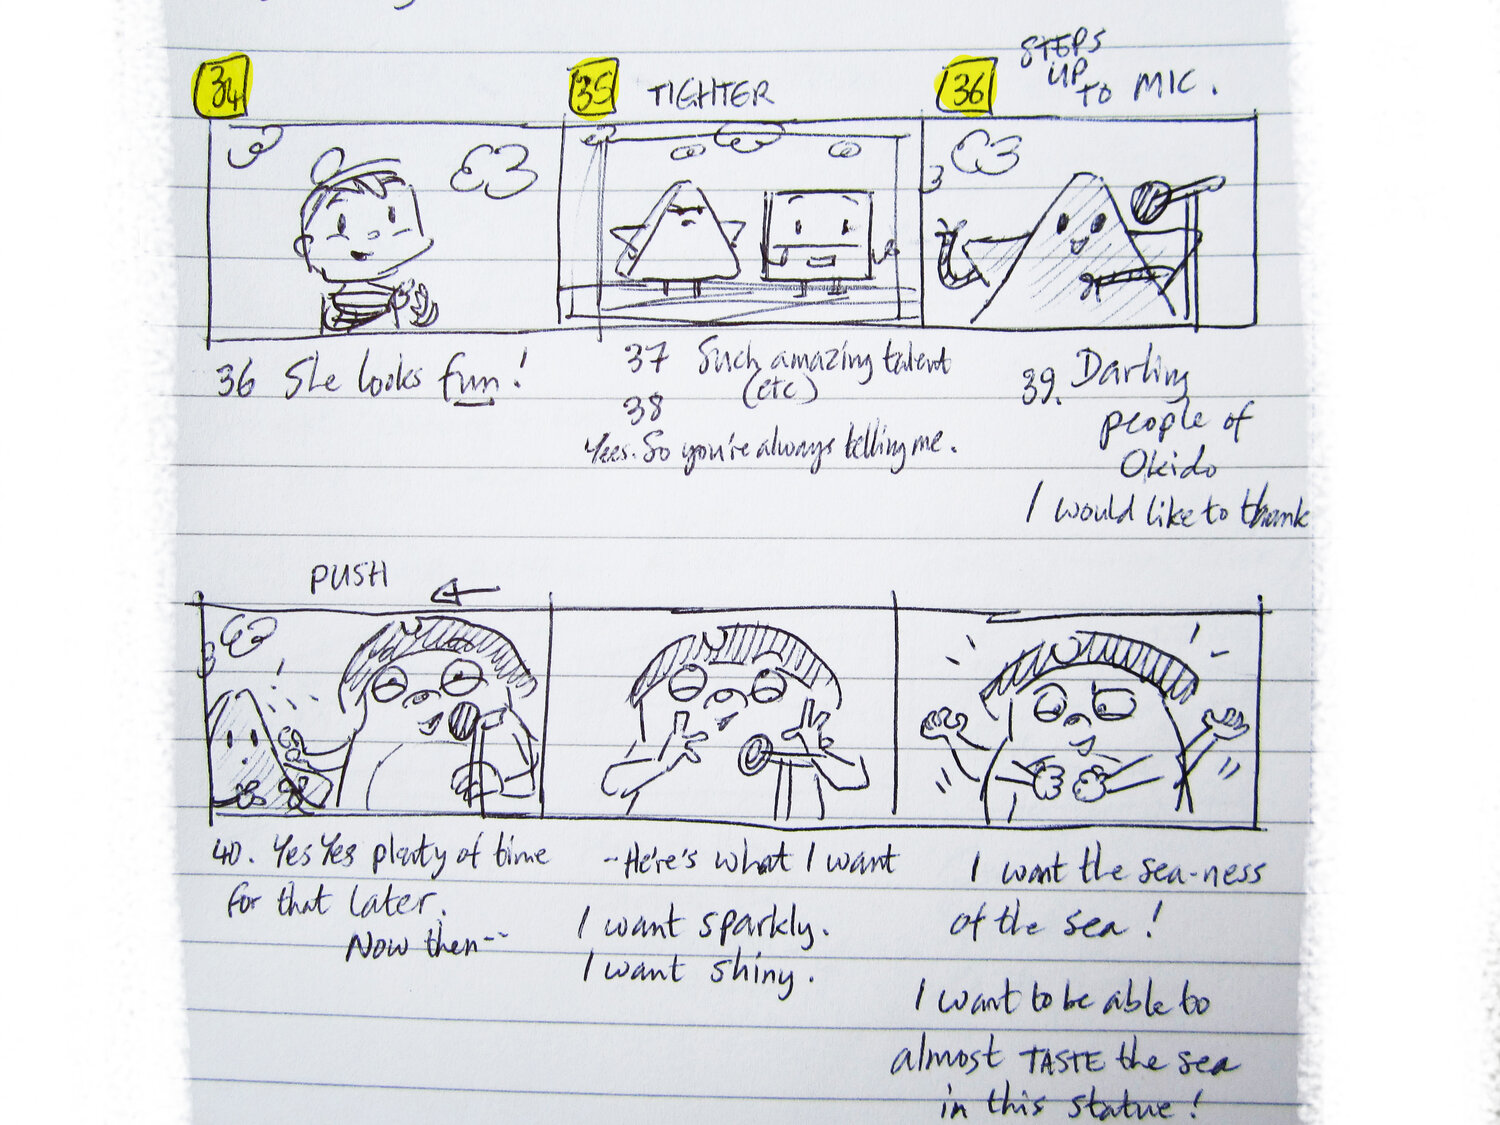 34
35 TIGHTER
36 STEPS
UP
TO MIC.
36 She looks fun!
37 Such amazing talent
(etc)
38
Yees. So you're always telling me.
39. Darling
people of
Okido
I would like to thank
PUSH
40. Yes Yes plenty of time
for that later.
Now then--
-Here's what I want
I want sparkly.
I want shiny.
I want the sea-ness
of the sea!
I want to be able to
almost TASTE the sea
in this statue!